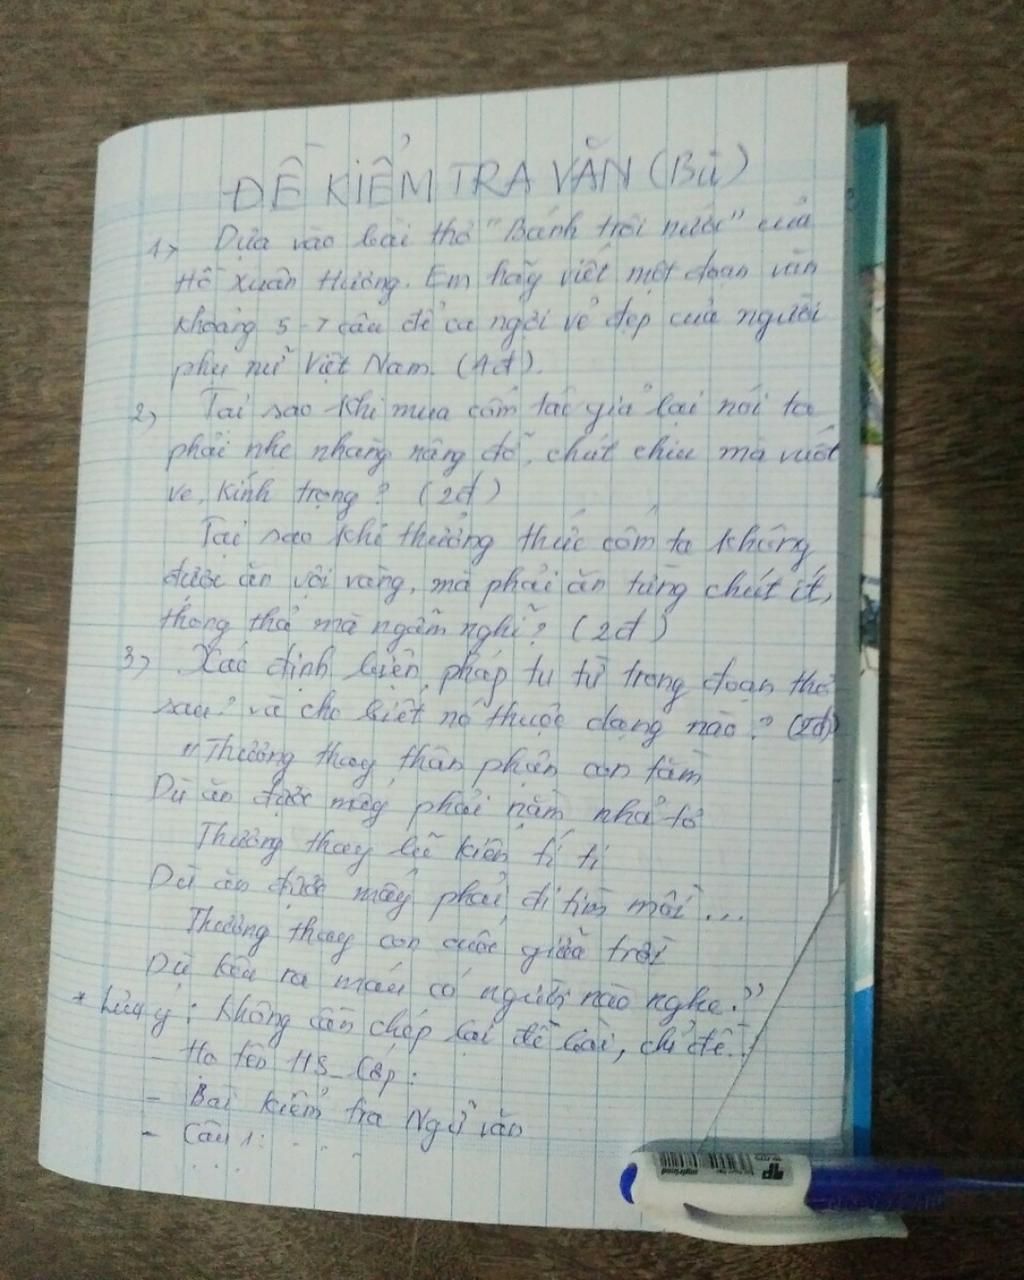 ĐỀ KIỂM TRA VĂN (Bù)
1, Dựa vào bài thơ "Bánh trôi nước" của
Hồ Xuân Hương. Em hãy viết một đoạn văn
khoảng 5-7 câu để ca ngợi vẻ đẹp của người
phụ nữ Việt Nam. (4đ).
2, Tại sao khi mua cốm tác giả lại nói ta
phải nhẹ nhàng nâng đỡ, chút chiu mà vuốt
ve, kính trọng? (2đ)
Tại sao khi thưởng thức cốm ta không
được ăn vội vàng, mà phải ăn từng chút ít,
thong thả mà ngẫm nghĩ? (2đ)
3, Xác định biện pháp tu từ trong đoạn thơ
sau? và cho biết nó thuộc dạng nào? (2đ)
"Thương thay thân phận con tằm
Dù ăn được mấy phải nằm nhả tơ
Thương thay lũ kiến tí ti
Dù ăn được mấy phải đi tìm mồi...
Thương thay con cuốc giữa trời
Dù kêu ra máu có người nào nghe."
* Lưu ý: Không cần chép lại đề bài, chỉ để:
- Họ tên HS_Lớp:
- Bài kiểm tra Ngữ văn
- Câu 1: . . .
. . . .
myfriend
TP